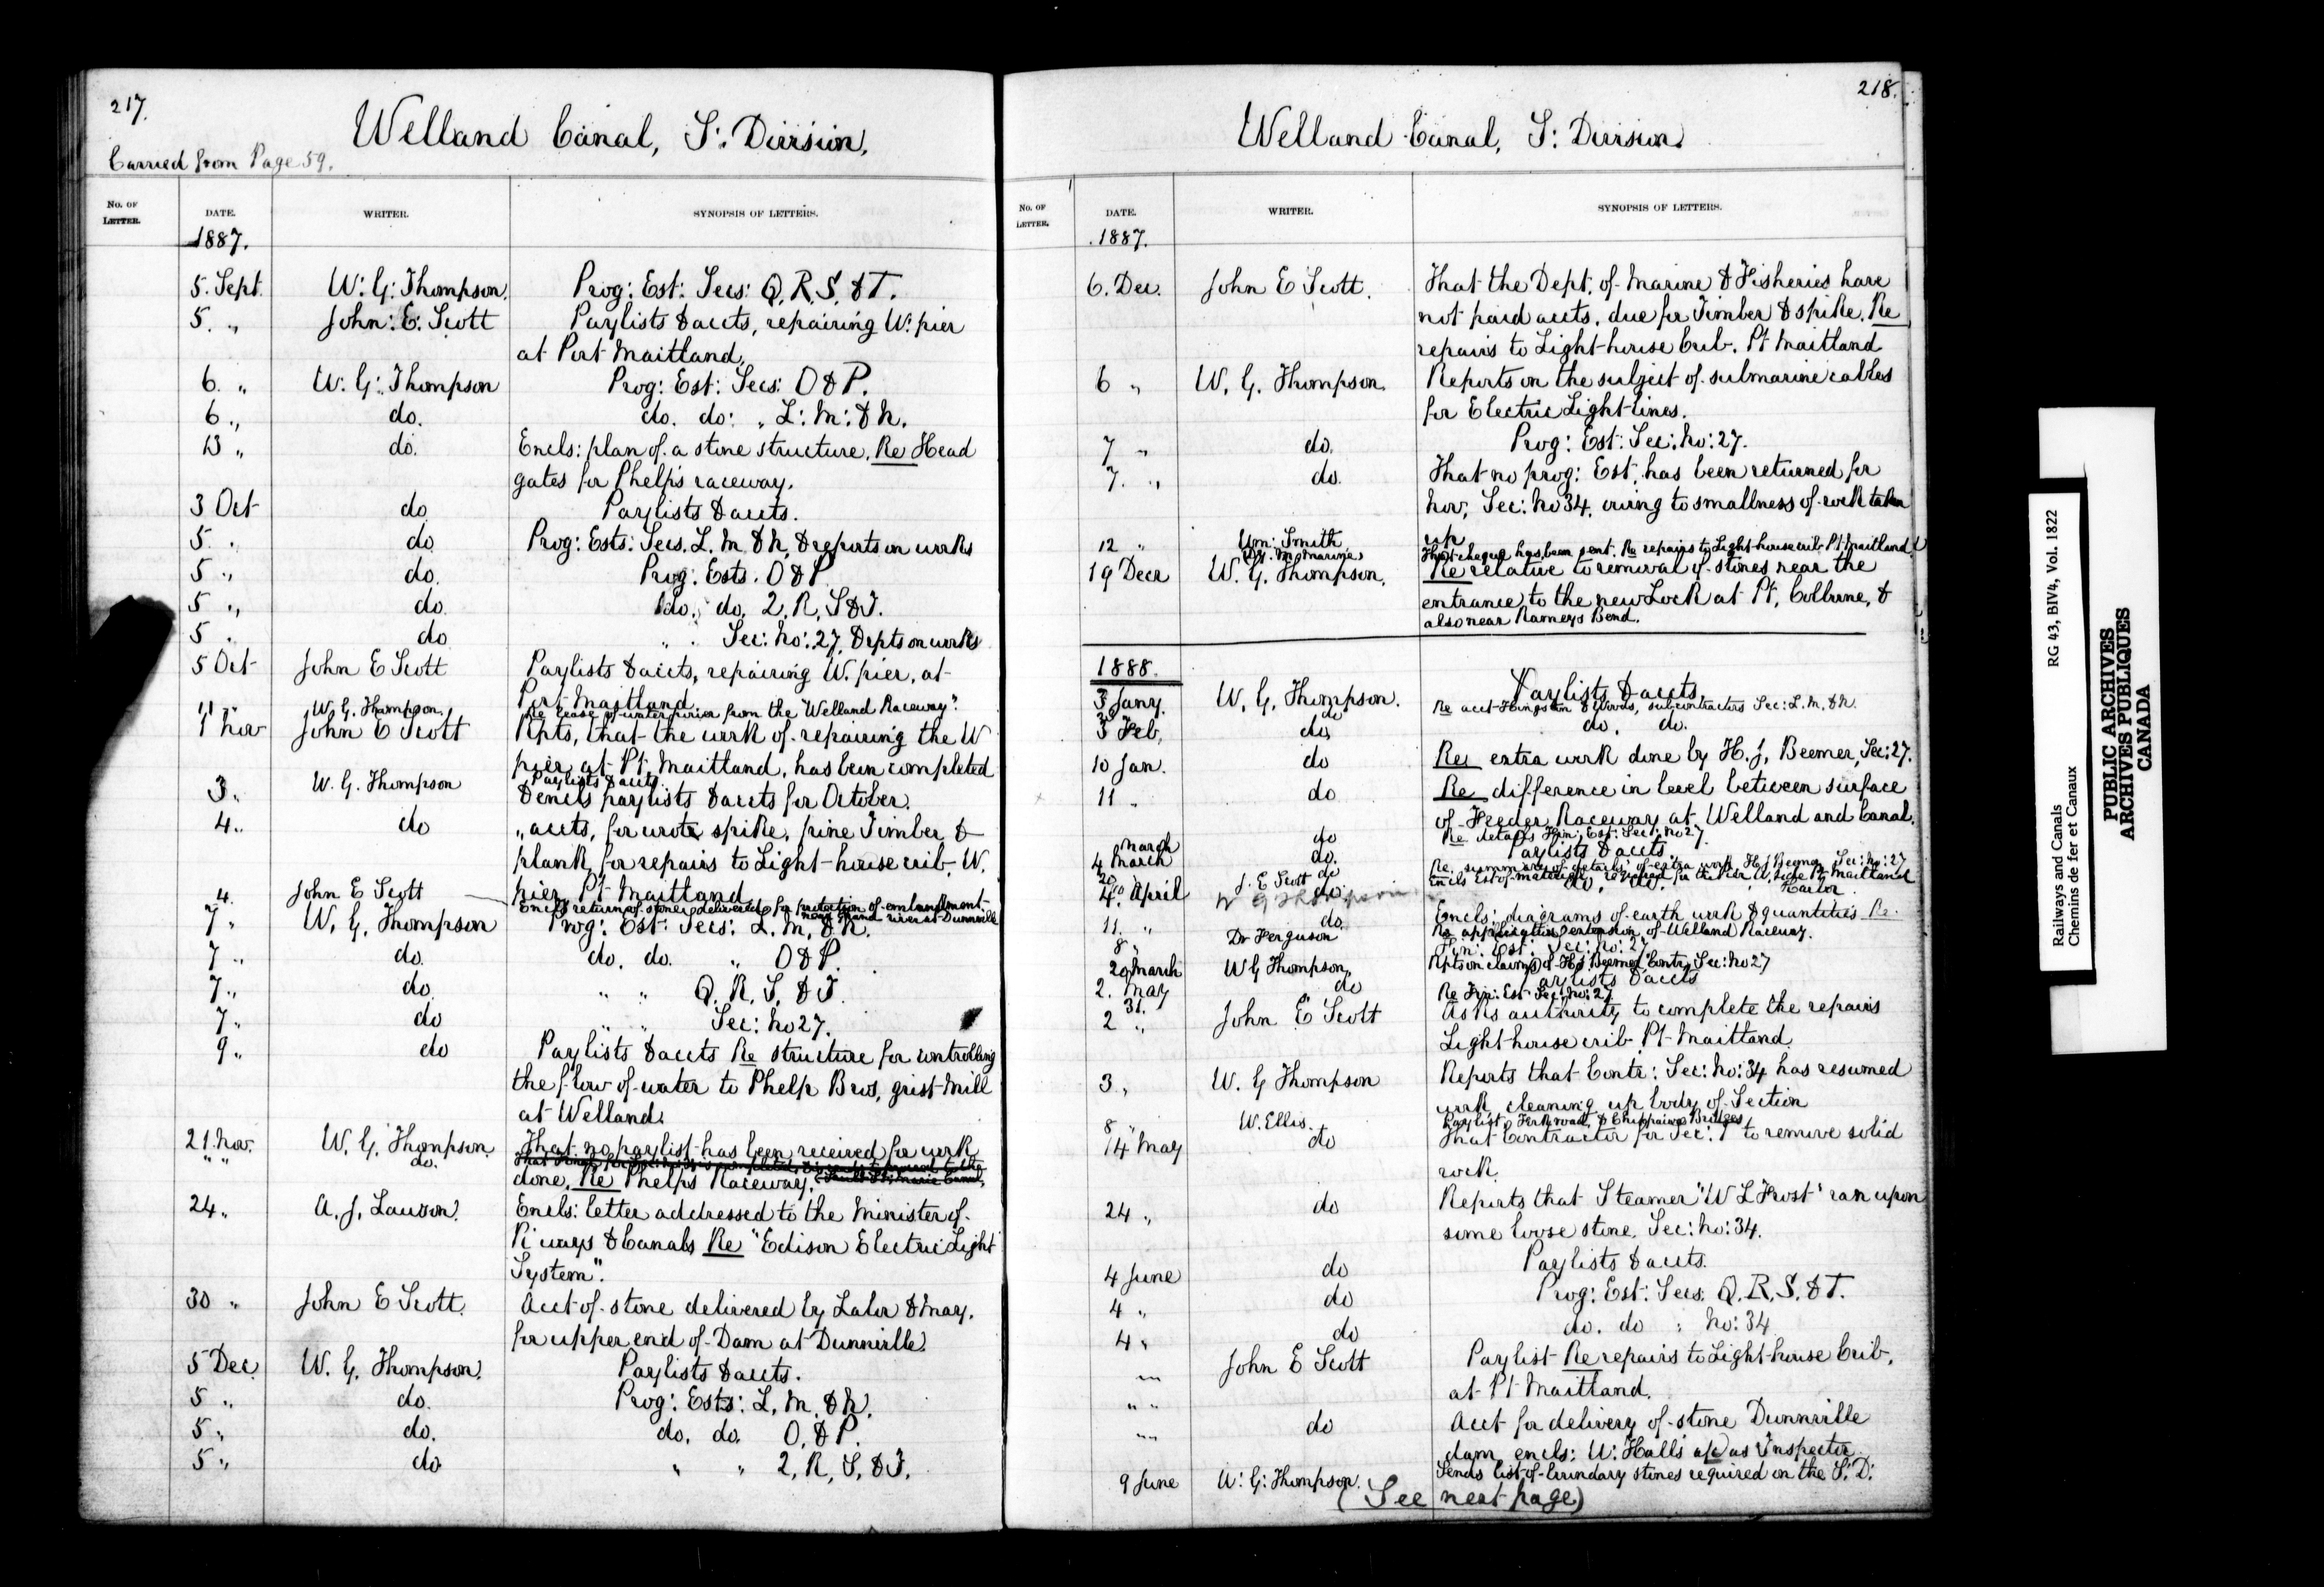 217.
Welland Canal, S: Division.
Carried from Page 59.
No. OF LETTER. DATE. WRITER. SYNOPSIS OF LETTERS.
1887.
5. Sept. W: G: Thompson. Prog: Est: Secs: Q, R, S, & T.
5. „ John: E: Scott Paylists & accts, repairing W: pier
at Port Maitland.
6. „ W: G: Thompson Prog: Est: Secs: O & P.
6 „ do. do. do: „ L: M: & N.
13 „ do. Encls: plan of a stone structure, Re Head
gates for Phelps raceway.
3 Oct do Paylists & accts.
5. „ do Prog: Ests: Secs. L. M & N, & reports on works
5 „ do. Prog: Ests. O & P
5 „ do. do. do. Q, R, S & T.
5 „ do „ „ Sec: No: 27, & rpts on works
5 Oct John E Scott Paylists & accts, repairing W. pier, at
Port Maitland
11 „ W. G. Thompson. Re lease of water power from the "Welland Raceway".
1 Nov John E Scott Rpts, that the work of repairing the W
pier at Pt Maitland, has been completed
3 „ W. G. Thompson Paylists & accts.
& encls paylists & accts for October.
4 „ do „ accts, for wrote spike, pine Timber &
plank, for repairs to Light-house crib, W.
pier Pt Maitland
4. John E Scott Encls return of stone delivered for protection of embankment
near Grand river at Dunnville
7 „ W. G. Thompson Prog: Est: Secs: L. M, & N.
7 „ do. do. do. „ O & P.
7 „ do „ „ Q. R, S, & T.
7 „ do „ „ Sec: No 27.
9 „ do Paylists & accts Re structure for controlling
the flow of water to Phelp Bros, grist-Mill
at Welland.
21. Nov. W. G. Thompson. That no paylist has been received for work
„ „ do.
done, Re Phelps Raceway.
24 „ A. J. Lawson. Encls: letter addressed to the Minister of
R'ways & Canals Re "Edison Electric Light
System".
30 „ John E Scott. Acct of stone delivered by Lalor & Mary,
for upper end of Dam at Dunnville.
5 Dec. W. G. Thompson. Paylists & accts.
5 „ do. Prog: Ests: L, M, & N.
5 „ do. do. do. O, & P.
5 „ do „ „ Q, R, S, & T.
218.
Welland Canal, S: Division.
No. OF LETTER. DATE. WRITER. SYNOPSIS OF LETTERS.
1887.
6. Dec. John E Scott. That the Dept. of Marine & Fisheries have
not paid accts. due for Timber & spike, Re
repairs to Light-house Crib. Pt Maitland
6 „ W. G. Thompson. Reports on the subject of submarine cables
for Electric Light lines.
7 „ do. Prog: Est: Sec: No: 27.
7. „ do. That no prog: Est, has been returned for
Nov, Sec: No 34. owing to smallness of rock taken
up
12 „ Wm: Smith Dy. M. Marine That cheque has been sent. Re repairs to Light-house crib Pt Maitland.
19 Decr W. G. Thompson. Re relative to removal of stones near the
entrance to the new Lock at Pt. Colborne, &
also near Rameys Bend.
1888.
3 Jany. W. G. Thompson. Paylists & accts
do Re acct Hingston & Woods, subcontractors Sec: L. M, & N.
3 Feb. do, do. do.
10 Jan. do Re, extra work done by H. J. Beemer, Sec: 27.
11 „ do Re difference in level between surface
of Feeder Raceway at Welland and Canal.
March do Re details Fin: Est: Sec: No 27.
4 March do. Paylists & accts
20 „ do Re. summary of details of extra work H J Beemer Sec: No: 27
10 J. E Scott Encls Est of material required for
4. April do do. do.
W G Thompson
11. „ do. Encls: diagrams of earth work & quantities Re.
Fin: Est: Sec: No: 27
8 „ Dr Ferguson Re application extension of Welland Raceway.
29 March W G Thompson. Rpts on claims of H J Beemer, Contr, Sec: No 27
2. May do Paylists & accts
31. „ Re Fin: Est Sec: No: 27
2 „ John E Scott Asks authority to complete the repairs
Light-house crib Pt Maitland
3 „ W. G Thompson Reports that Contr: Sec: No: 34 has resumed
work cleaning up body of Section
8 „ W. Ellis. Paylist, Forkroad, & Chippawa Bridges
14 May do That Contractor for Sec: T to remove solid
rock
24 „ do Reports that Steamer "W L Frost" ran upon
some loose stone, Sec: No: 34.
4 June do Paylists & accts.
4 „ do Prog: Est: Secs: Q. R, S, & T.
4 „ do do. do „ No: 34
„ „ John E Scott Paylist Re repairs to Light-house Crib,
„ „ at Pt Maitland.
„ „ do Acct for delivery of stone Dunnville
dam, encls: W: Halls a/c as Inspector
9 June W: G: Thompson. Sends list of boundary stones required on the S: D:
(See next page)
Railways and Canals RG 43, BIV4, Vol. 1822
Chemins de fer et Canaux
PUBLIC ARCHIVES
ARCHIVES PUBLIQUES
CANADA